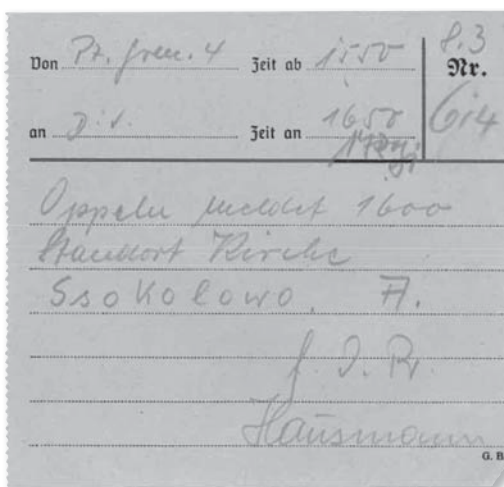 Von Pz. Gren. 4 Zeit ab 1550 8.3
Nr.
an Div. Zeit an 1650 614
Oppeln meldet 1600
Standort Kirche
Ssokolowo. A.
f. d. R.
Hausmann
G. B